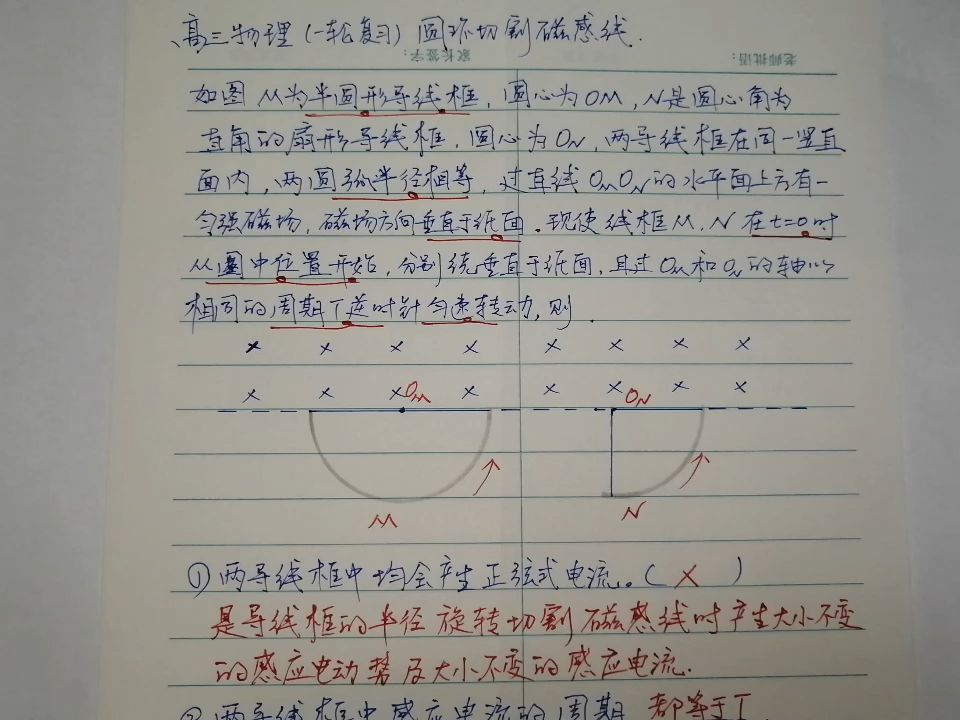 高三物理（一轮复习）圆环切割磁感线.
家长签字：
老师批语：
如图 M为半圆形导线框，圆心为OM，N是圆心角为
直角的扇形导线框，圆心为ON，两导线框在同一竖直
面内，两圆弧半径相等，过直线OMON的水平面上方有一
匀强磁场，磁场方向垂直于纸面.现使线框M，N在t=0时
从图中位置开始，分别绕垂直于纸面，且过OM和ON的轴以
相同的周期T逆时针匀速转动，则.
× × × × × × × ×
× × × × × × × ×
OM ON
M N
①两导线框中均会产生正弦式电流。（ × ）
是导线框的半径旋转切割磁感线时产生大小不变
的感应电动势及大小不变的感应电流.
②两导线框中感应电流的周期 都等于T